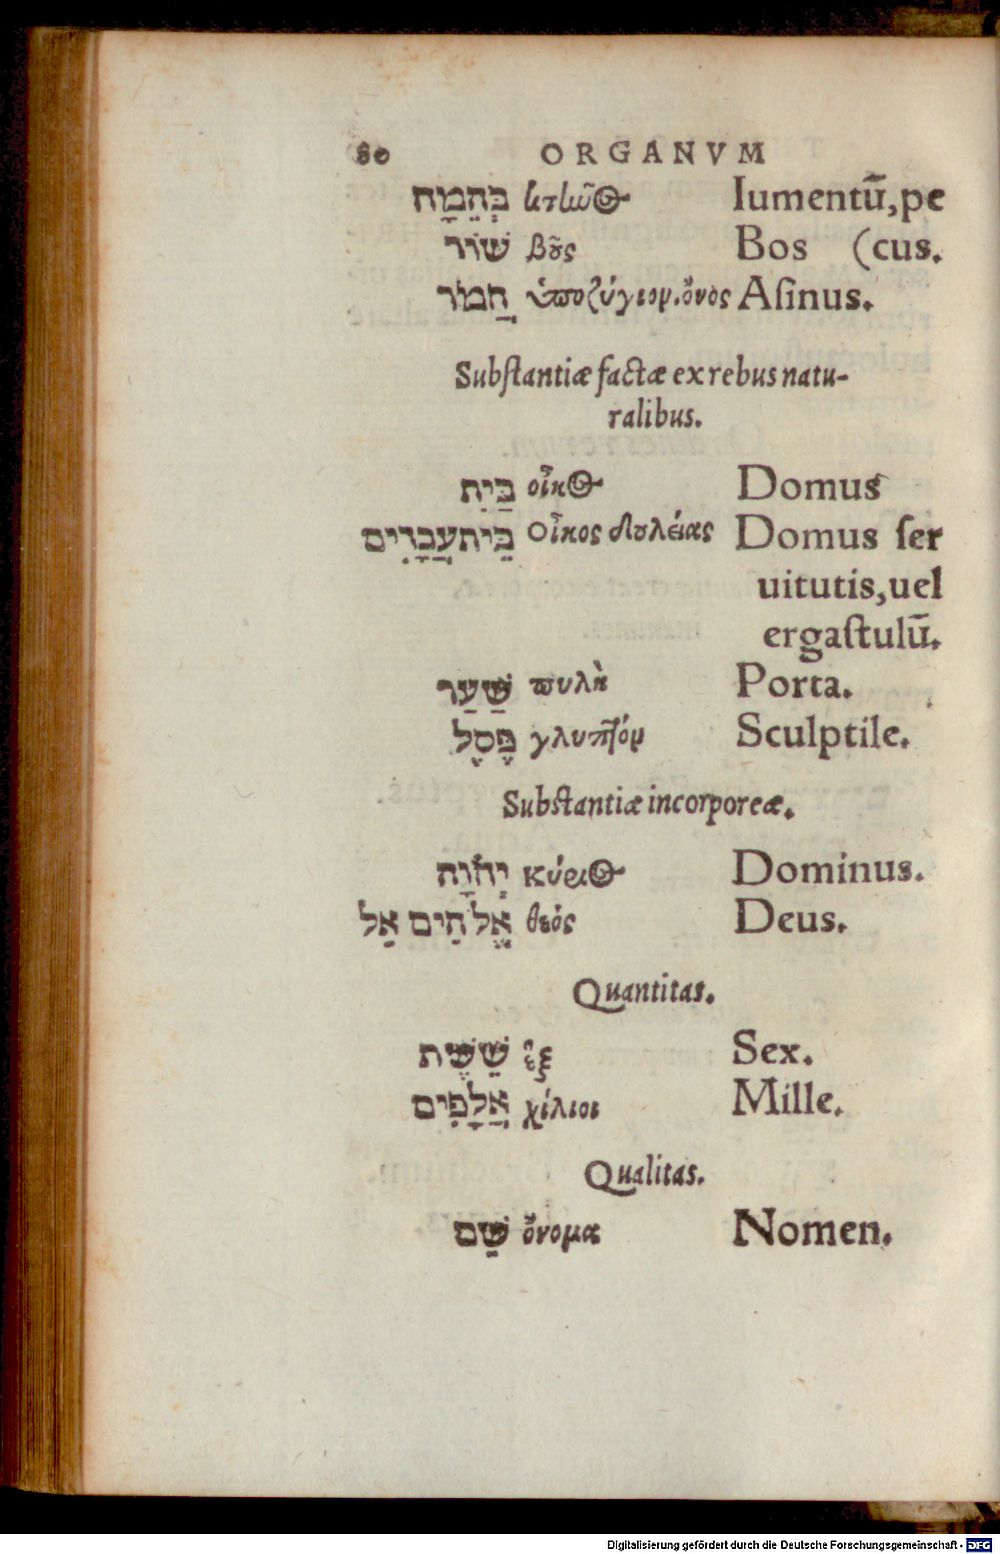 80 ORGANVM
בְּהֵמָה κτῶος Iumentū,pe
שׁוֹר βοῦς Bos (cus.
חֲמוֹר ὑποζύγιον.ὄνὸς Aſinus.
Subſtantiæ factæ ex rebus natu-
ralibus.
בַּיִת οἶκος Domus
בֵּית עֲבָדִים Οἶκος δουλείας Domus ſer
uitutis,uel
ergaſtulū.
שַׁעַר πυλὴ Porta.
פֶּסֶל γλυπτόν Sculptile.
Subſtantiæ incorporeæ.
יְהֹוָה κύριος Dominus.
אֱלֹהִים אֵל θεός Deus.
Quantitas.
שֵׁשֶׁת ἓξ Sex.
אֲלָפִים χίλιοι Mille.
Qualitas.
שֵׁם ὄνομα Nomen.
Digitalisierung gefördert durch die Deutsche Forschungsgemeinschaft - DFG